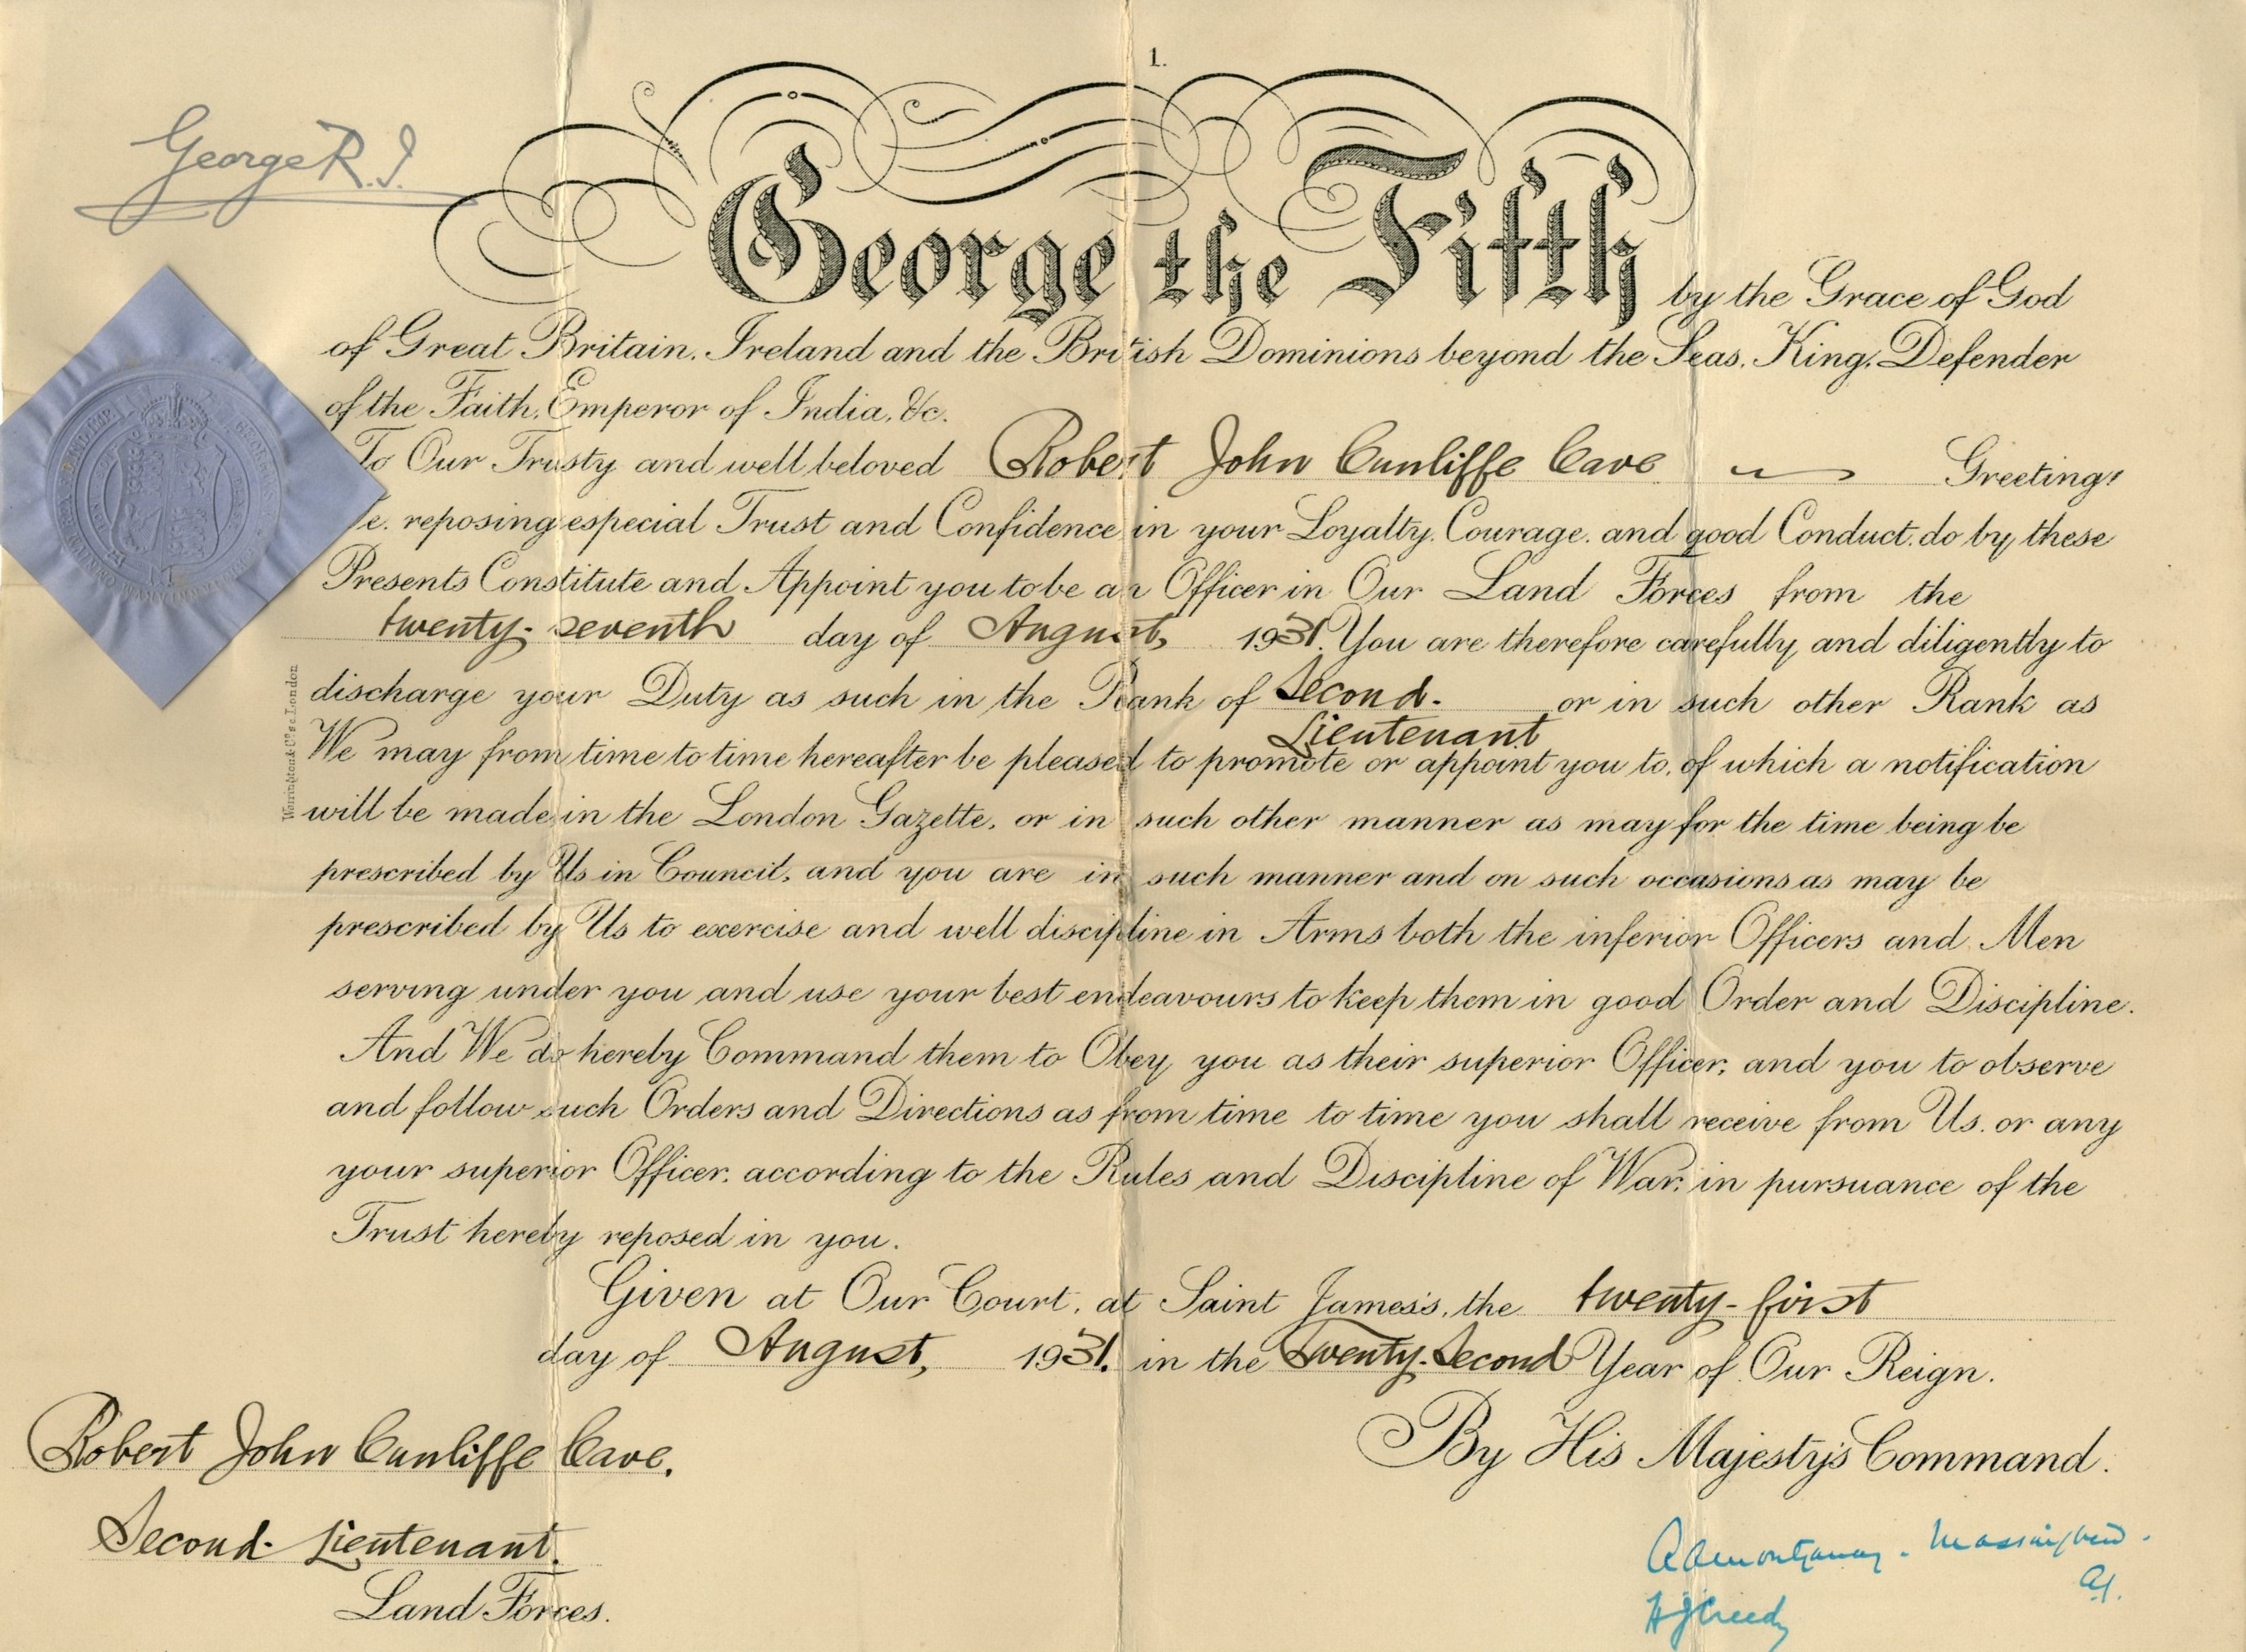 1.
George R.I.
George the Fifth by the Grace of God
of Great Britain, Ireland and the British Dominions beyond the Seas, King, Defender
of the Faith, Emperor of India, &c.
To Our Trusty and well beloved Robert John Cunliffe Cave Greeting!
e, reposing especial Trust and Confidence in your Loyalty, Courage, and good Conduct, do by these
Presents Constitute and Appoint you to be an Officer in Our Land Forces from the
twenty-seventh day of August, 1931. You are therefore carefully and diligently to
discharge your Duty as such in the Rank of Second- or in such other Rank as
Lieutenant
We may from time to time hereafter be pleased to promote or appoint you to, of which a notification
will be made in the London Gazette, or in such other manner as may for the time being be
prescribed by Us in Council, and you are in such manner and on such occasions as may be
prescribed by Us to exercise and well discipline in Arms both the inferior Officers and Men
serving under you and use your best endeavours to keep them in good Order and Discipline.
And We do hereby Command them to Obey you as their superior Officer, and you to observe
and follow such Orders and Directions as from time to time you shall receive from Us, or any
your superior Officer, according to the Rules and Discipline of War, in pursuance of the
Trust hereby reposed in you.
Given at Our Court, at Saint James's, the twenty-first
day of August, 1931. in the Twenty-Second Year of Our Reign.
By His Majesty's Command.
Robert John Cunliffe Cave.
Second-Lieutenant.
Land Forces.
H J Creedy